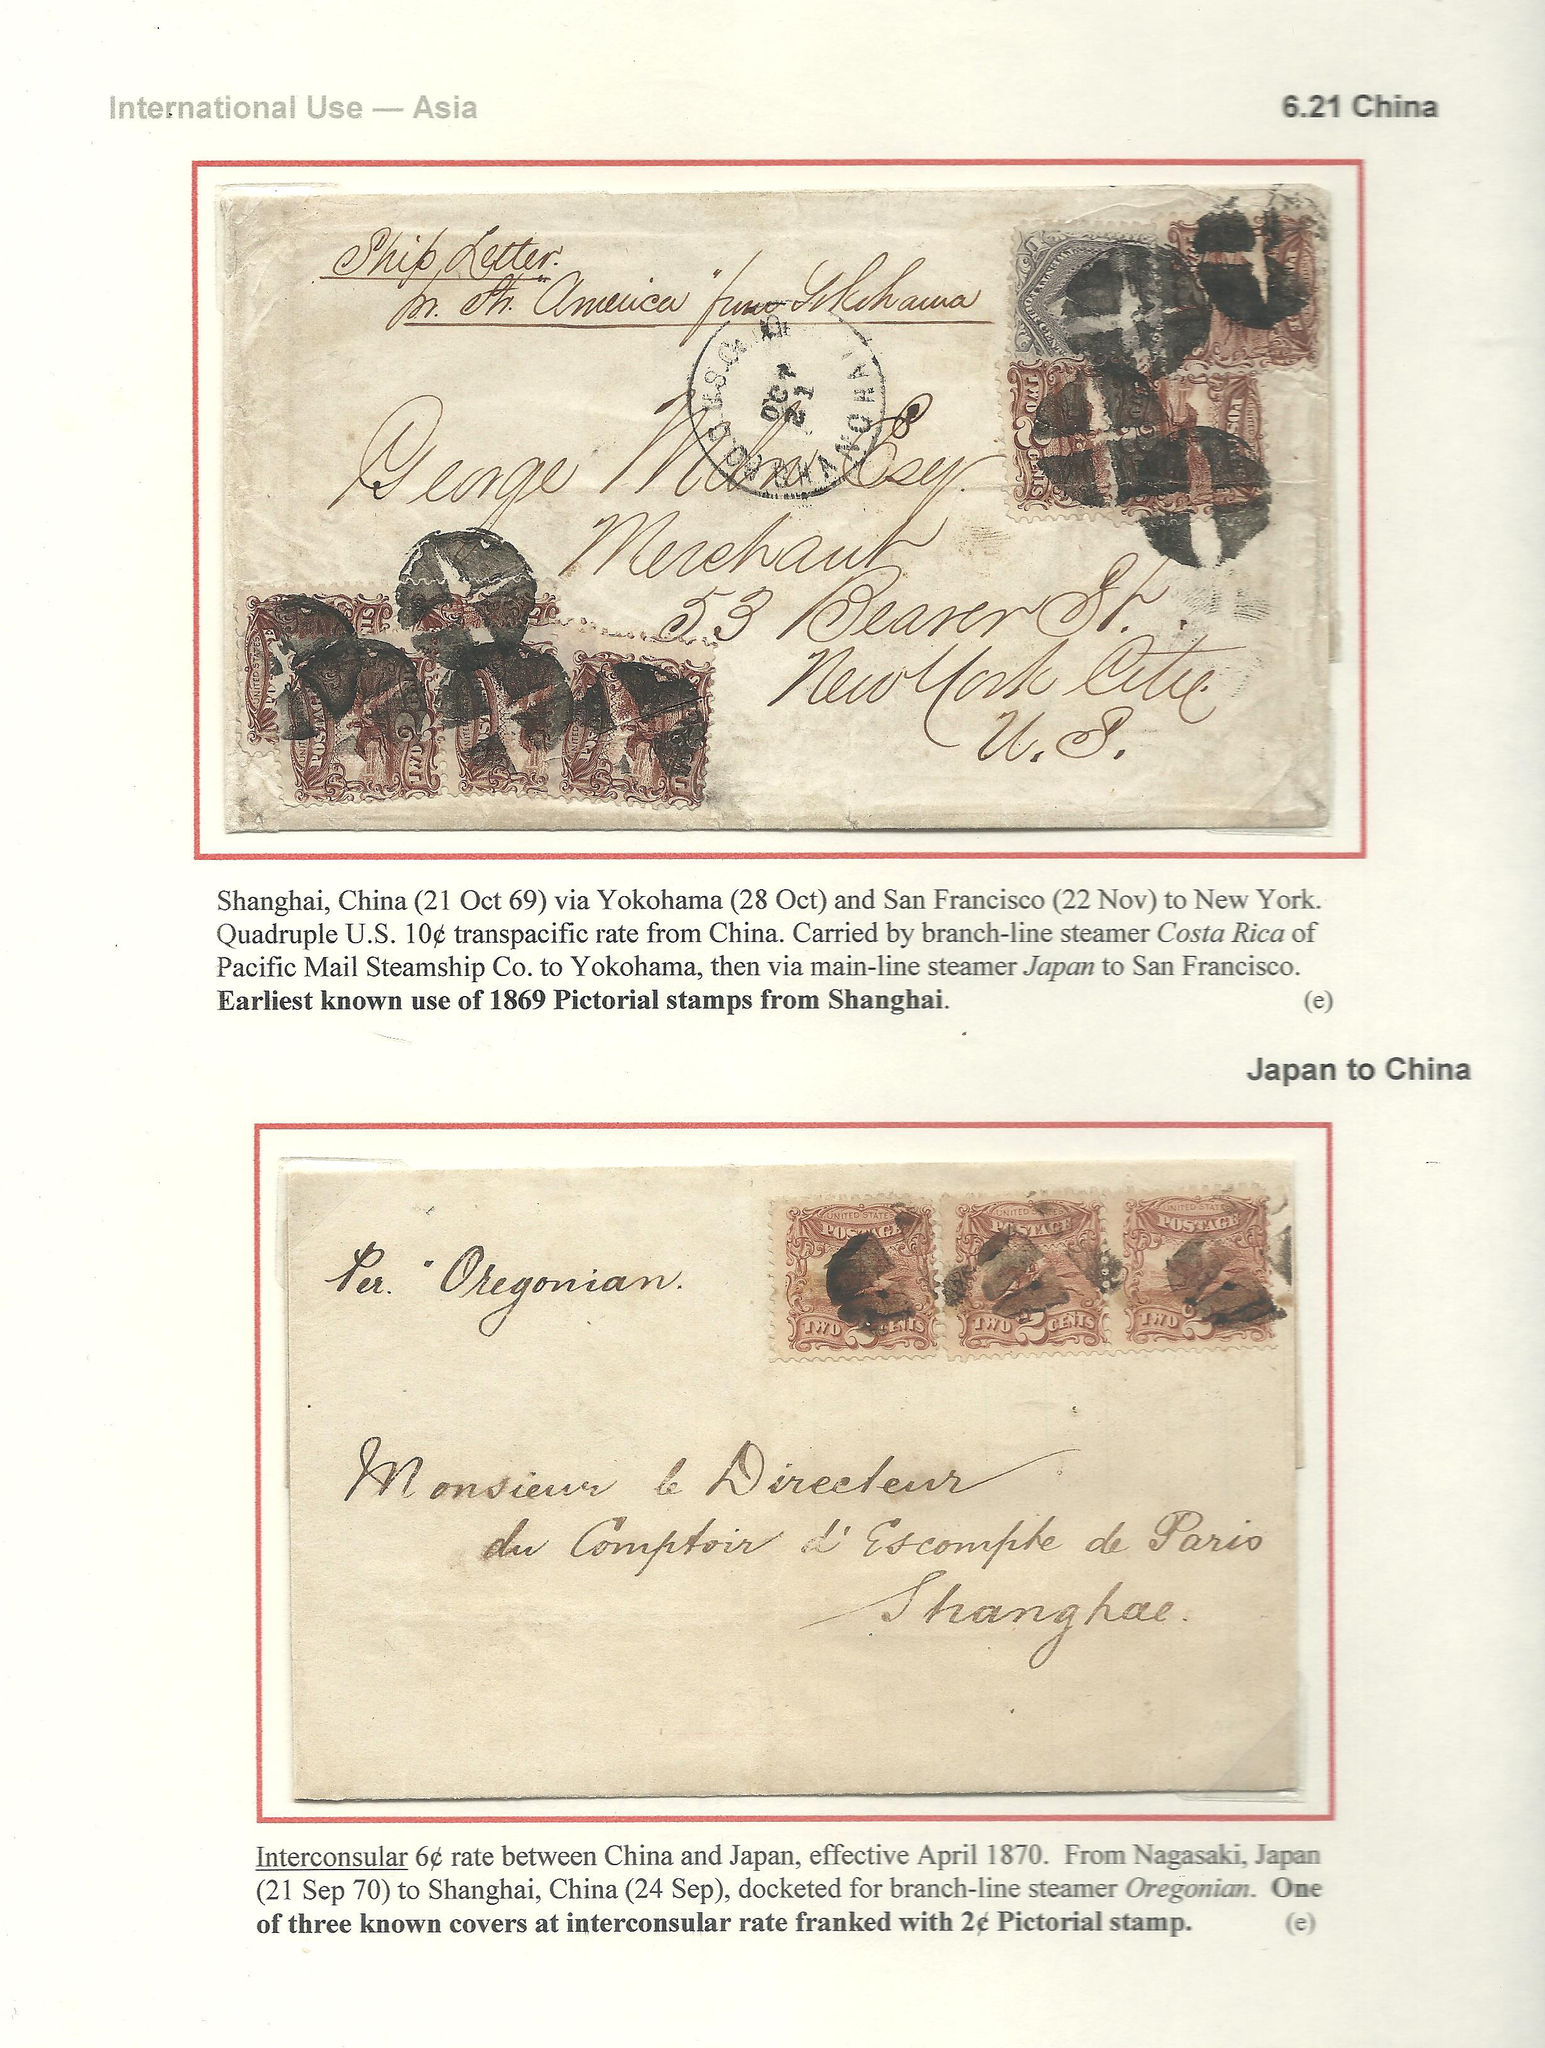 International Use — Asia
6.21 China
Ship Letter.
pr. Str. "America" from Yokohama
U.S. SHANGHAI
OCT
21
George Esq.
Merchant
53 Beaver St.
New York City.
U. S.
TWO 2 CENTS
POSTAGE
POSTAGE
POSTAGE
Shanghai, China (21 Oct 69) via Yokohama (28 Oct) and San Francisco (22 Nov) to New York.
Quadruple U.S. 10¢ transpacific rate from China. Carried by branch-line steamer Costa Rica of
Pacific Mail Steamship Co. to Yokohama, then via main-line steamer Japan to San Francisco.
Earliest known use of 1869 Pictorial stamps from Shanghai. (e)
Japan to China
UNITED STATES UNITED STATES UNITED STATES
POSTAGE POSTAGE POSTAGE
TWO 2 CENTS TWO 2 CENTS TWO 2
Per. "Oregonian.
Monsieur le Directeur
du Comptoir d'Escompte de Paris
Shanghae.
Interconsular 6¢ rate between China and Japan, effective April 1870. From Nagasaki, Japan
(21 Sep 70) to Shanghai, China (24 Sep), docketed for branch-line steamer Oregonian. One
of three known covers at interconsular rate franked with 2¢ Pictorial stamp. (e)